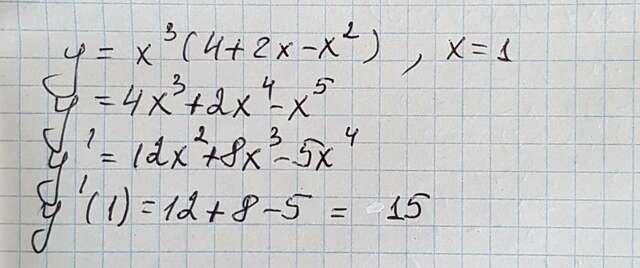 y = x³(4+2x-x²) , x=1
y = 4x³+2x⁴-x⁵
y' = 12x²+8x³-5x⁴
y'(1) = 12+8-5 = 15